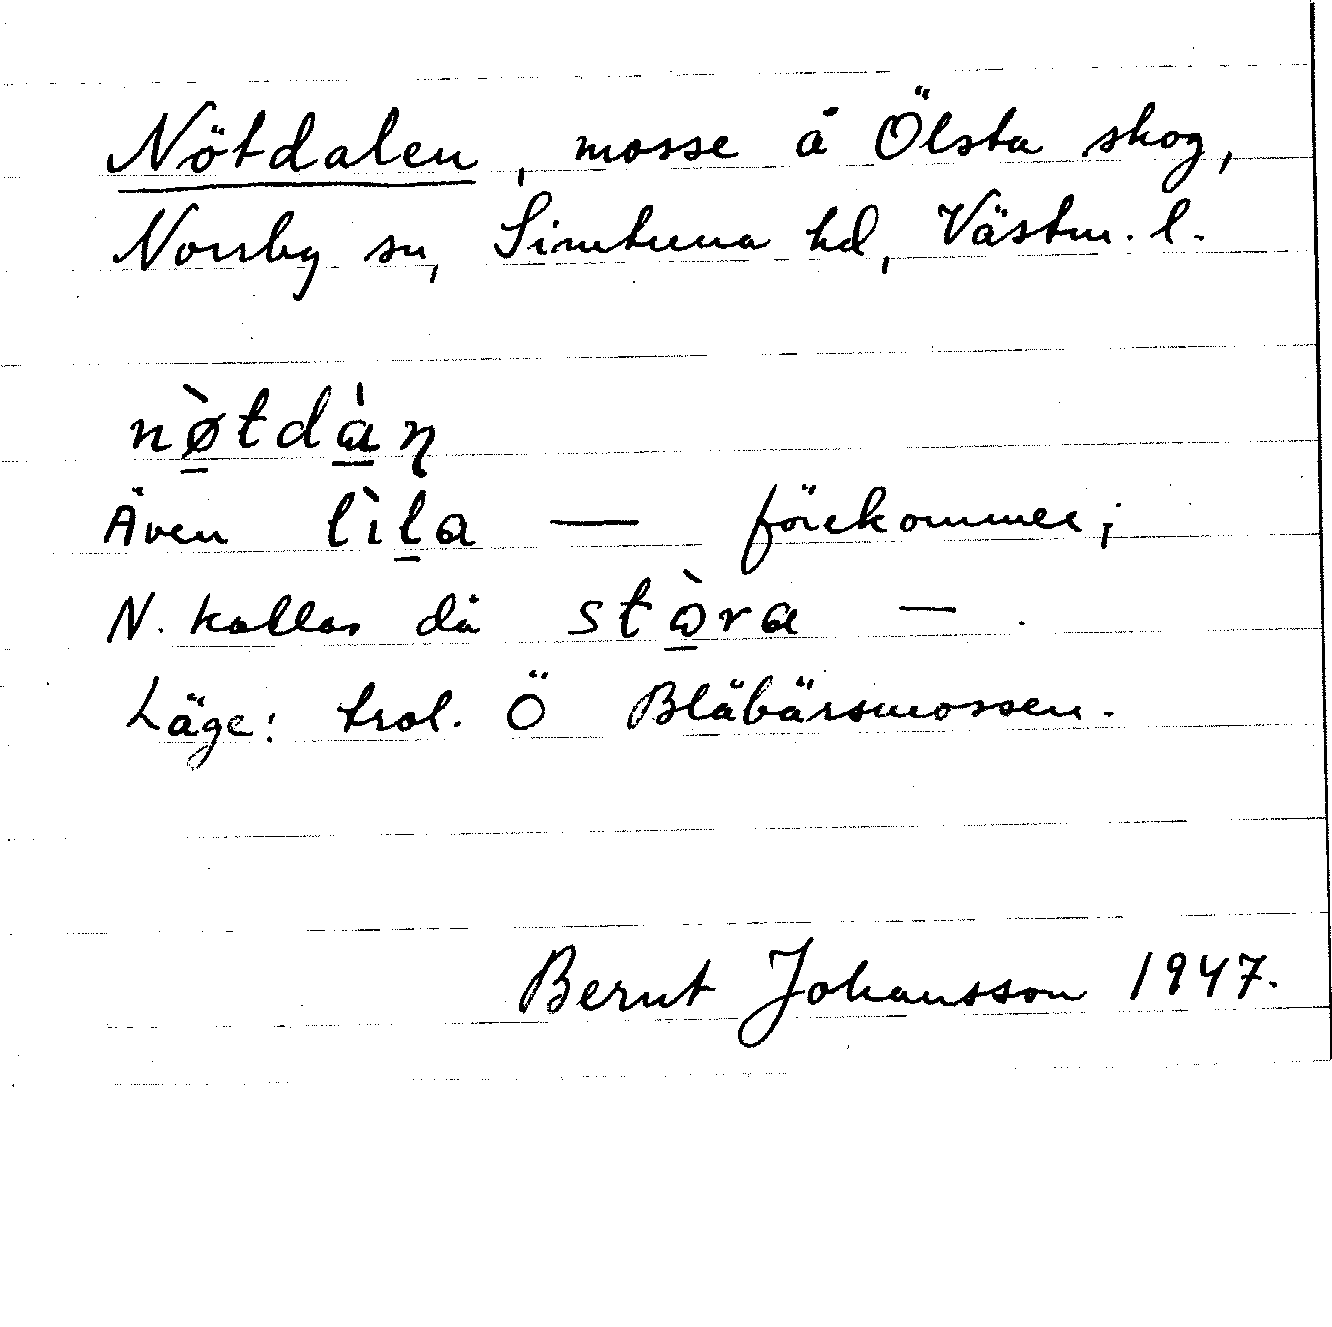 Nötdalen, mosse å Ölsta skog,
Norrby sn, Simtuna hd, Västm. l.
nø̠̀tda̠̍ɳ
Även lìl̠a — förekommer;
N. kallas då stɷ̠̀ra — .
Läge: trol. Ö Blåbärsmossen.
Bernt Johansson 1947.